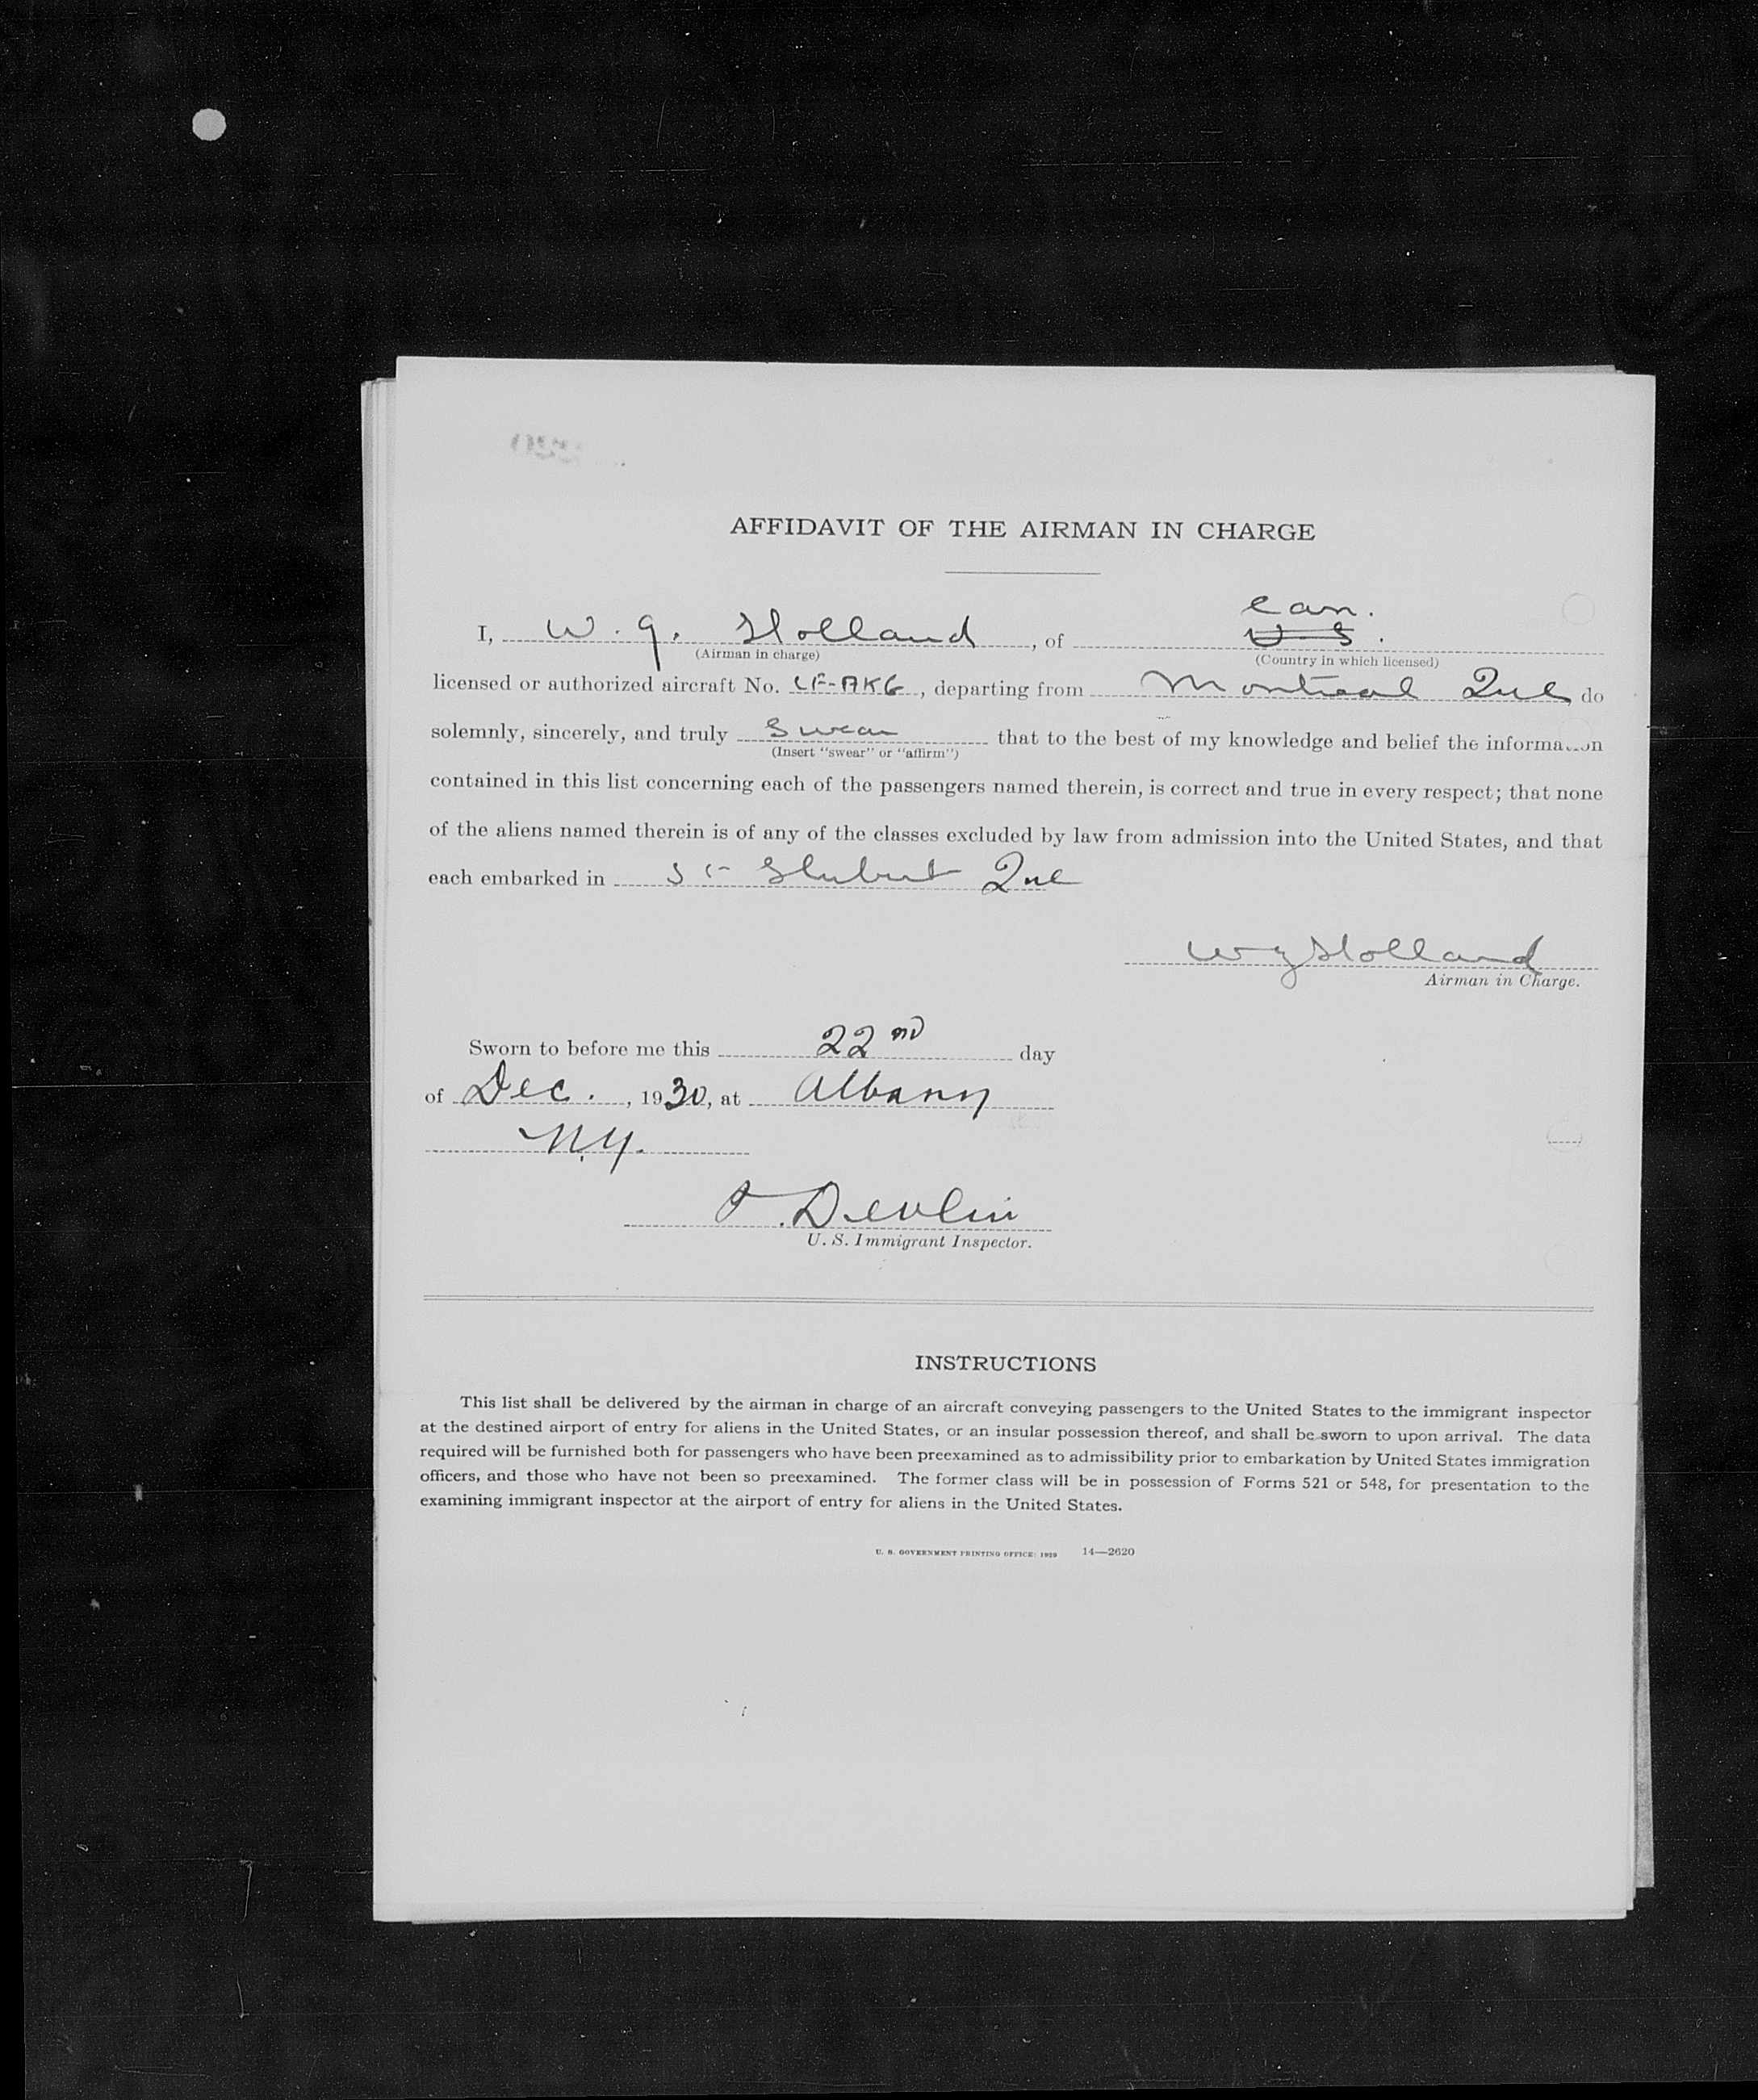 AFFIDAVIT OF THE AIRMAN IN CHARGE
Can.
I, W. G. Holland, of U S.
(Airman in charge) (Country in which licensed)
licensed or authorized aircraft No. CF-AKG, departing from Montreal Que do
solemnly, sincerely, and truly Swear that to the best of my knowledge and belief the information
(Insert "swear" or "affirm")
contained in this list concerning each of the passengers named therein, is correct and true in every respect; that none
of the aliens named therein is of any of the classes excluded by law from admission into the United States, and that
each embarked in St Hubert Que
W G Holland
Airman in Charge.
Sworn to before me this 22nd day
of Dec., 1930, at Albany
N.Y.
Devlin
U. S. Immigrant Inspector.
INSTRUCTIONS
This list shall be delivered by the airman in charge of an aircraft conveying passengers to the United States to the immigrant inspector
at the destined airport of entry for aliens in the United States, or an insular possession thereof, and shall be sworn to upon arrival. The data
required will be furnished both for passengers who have been preexamined as to admissibility prior to embarkation by United States immigration
officers, and those who have not been so preexamined. The former class will be in possession of Forms 521 or 548, for presentation to the
examining immigrant inspector at the airport of entry for aliens in the United States.
U. S. GOVERNMENT PRINTING OFFICE: 1929 14—2620